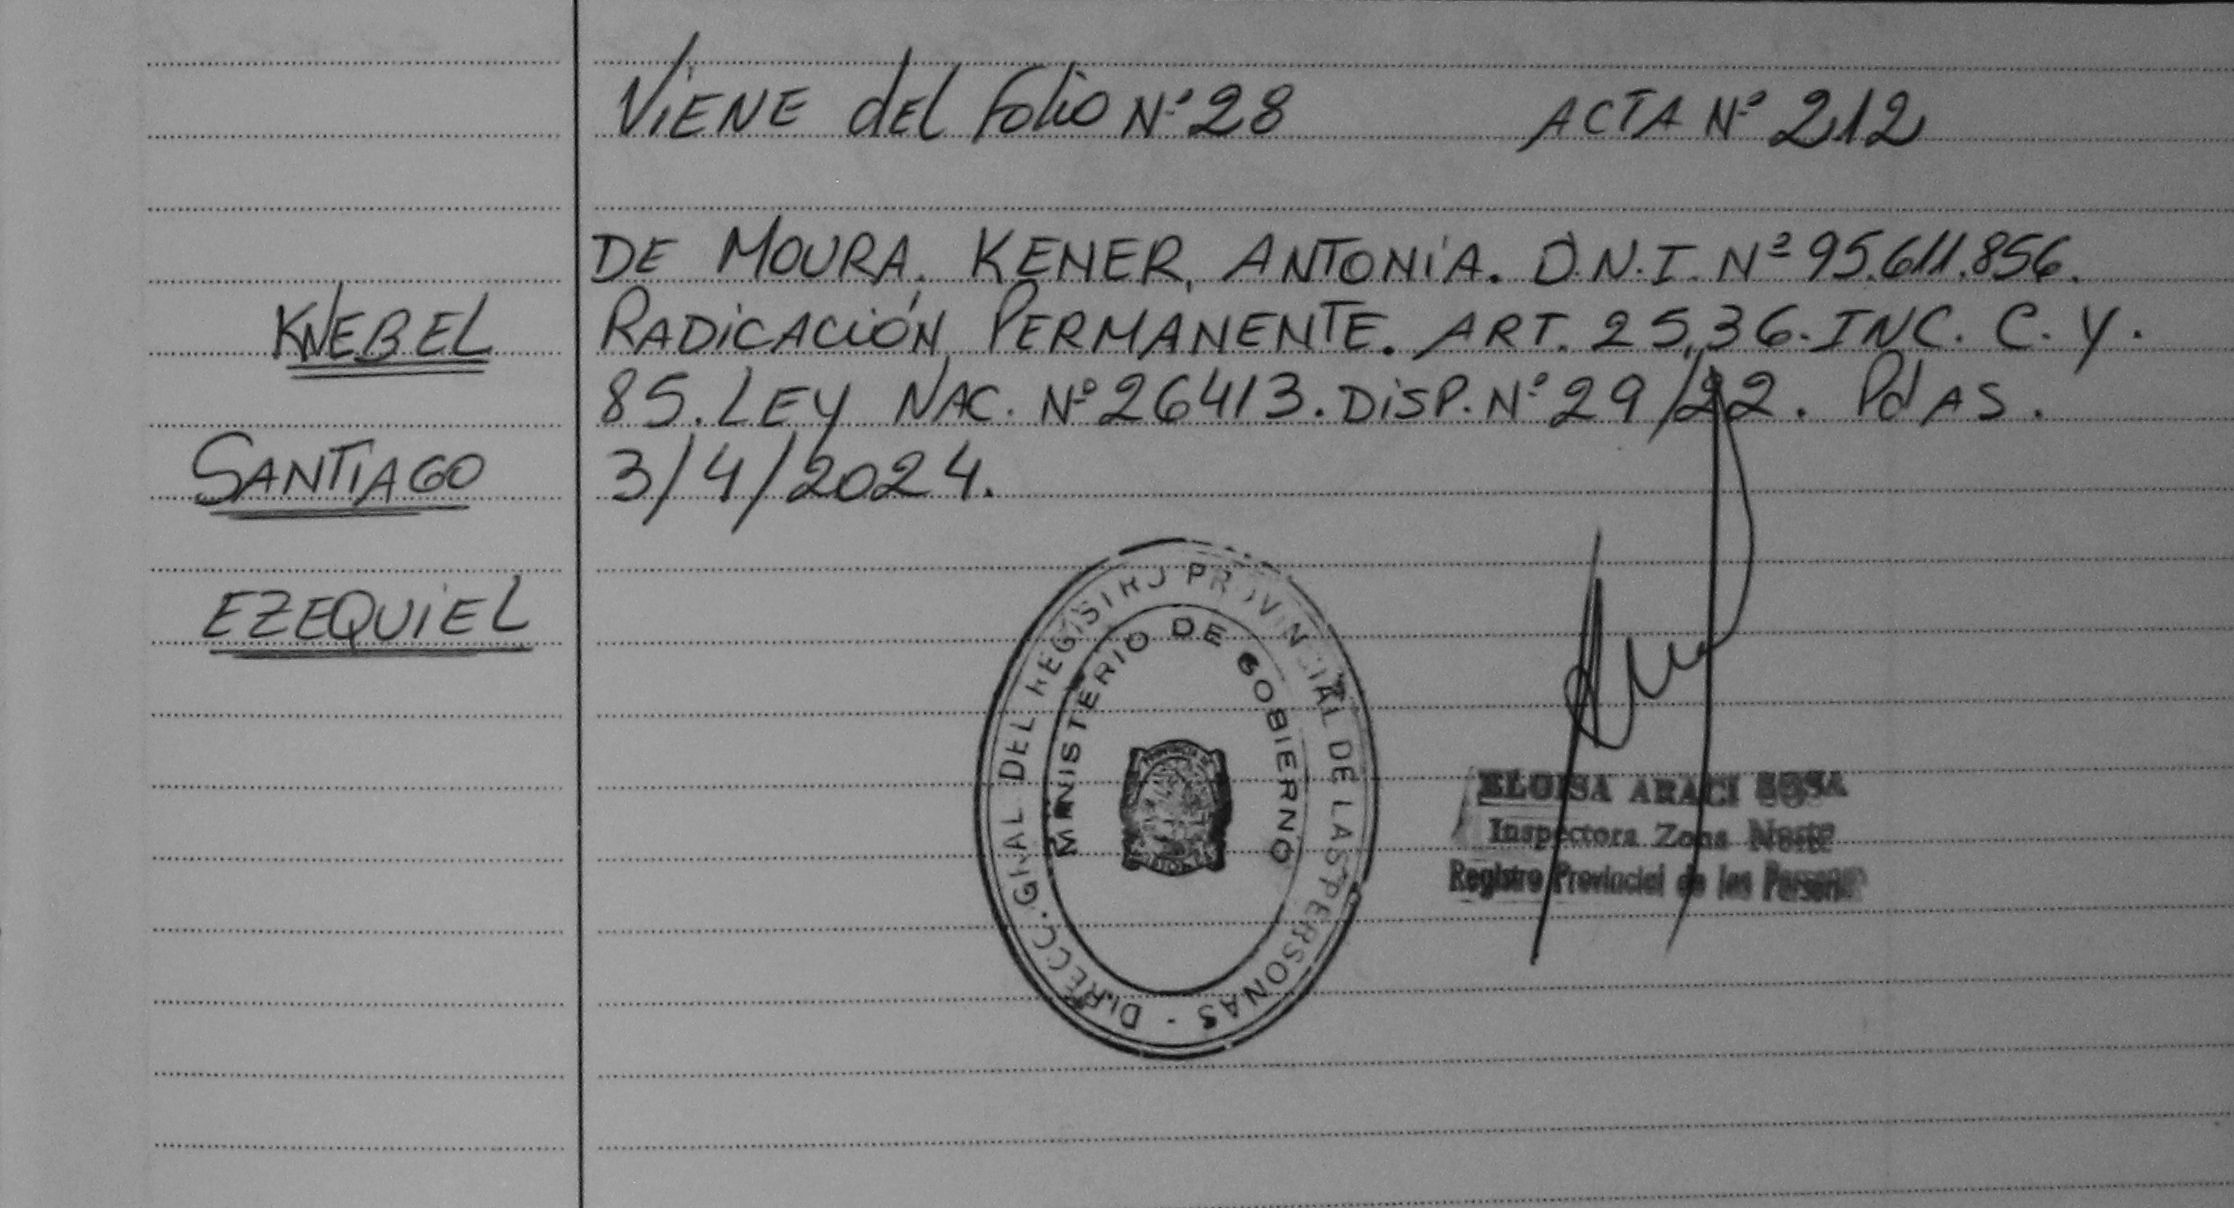 ViENE dEL folio Nº 28 ACTA Nº 212
DE MOURA. KENER, ANTONiA. D.N.I. Nº 95.611.856.
KNEBEL
RADiCACiÓN PERMANENTE. ART. 25,36. INC. C. Y.
85. LEY NAC. Nº 26413. DiSP. Nº 29/22. PdAS.
SANTIAGO
3/4/2024.
EZEQUiEL
DIRECC. GRAL DEL REGISTRO PROVINCIAL DE LAS PERSONAS -
MINISTERIO DE GOBIERNO
ELOISA ARACI SOSA
Inspectora Zona Norte
Registro Provincial de las Personas